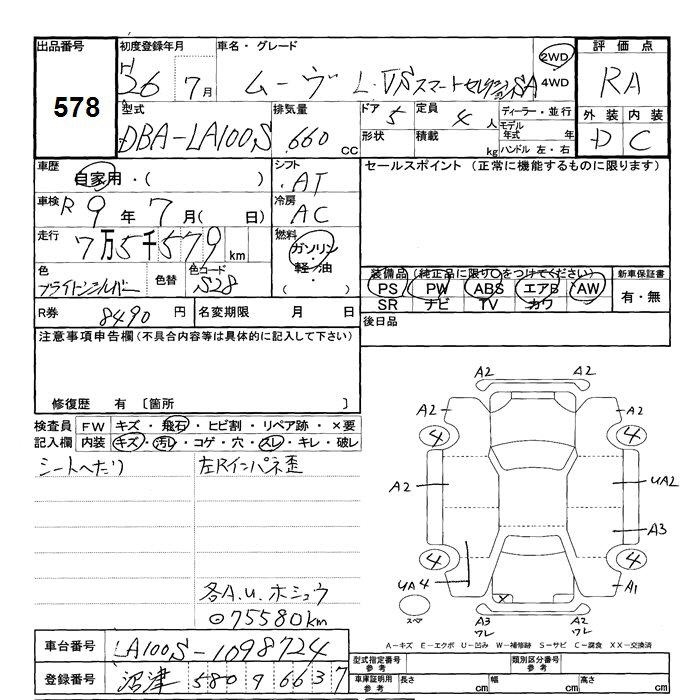 出品番号
578
初度登録年月
H26 7月
車名・グレード
ムーヴ L・VSスマートセレクションSA
2WD
4WD
評価点
RA
外装 内装
D C
型式
DBA-LA100S
排気量
660 CC
ドア 5
形状
定員 4 人
積載 kg
ディーラー・並行
モデル年式 年
ハンドル 左・右
車歴
自家用・( )
シフト
AT
セールスポイント (正常に機能するものに限ります)
車検 R 9年 7月( 日)
冷房
AC
走行
7万5千579 km
燃料
ガソリン
軽・油
( )
色
ブライトシルバー
色替
色コード
S28
装備品(純正品に限り○をつけてください)
PS PW ABS エアB AW
SR ナビ TV カワ
新車保証書
有・無
R券 8490 円
名変期限 月 日
後日品
注意事項申告欄(不具合内容等は具体的に記入して下さい)
修復歴 有 〔箇所 〕
検査員 FW キズ・飛石・ヒビ割・リペア跡・×要
記入欄 内装 キズ・汚レ・コゲ・穴・スレ・キレ・破レ
シートへたり
左Rインパネ歪
各A.U.ホシュウ
⊙75580km
A2 A2
A2 A2
4 4
A2 UA2
A3
4 4
UA4 A1
スペア
A3 A2
ワレ ワレ
A-キズ E-エクボ U-凹み W-補修跡 S-サビ C-腐食 XX-交換済
車台番号 LA100S-1098724
登録番号 沼津 580 9 6637
型式指定番号 参考
類別区分番号 参考
車庫証明用 参考
長さ cm
幅 cm
高さ cm